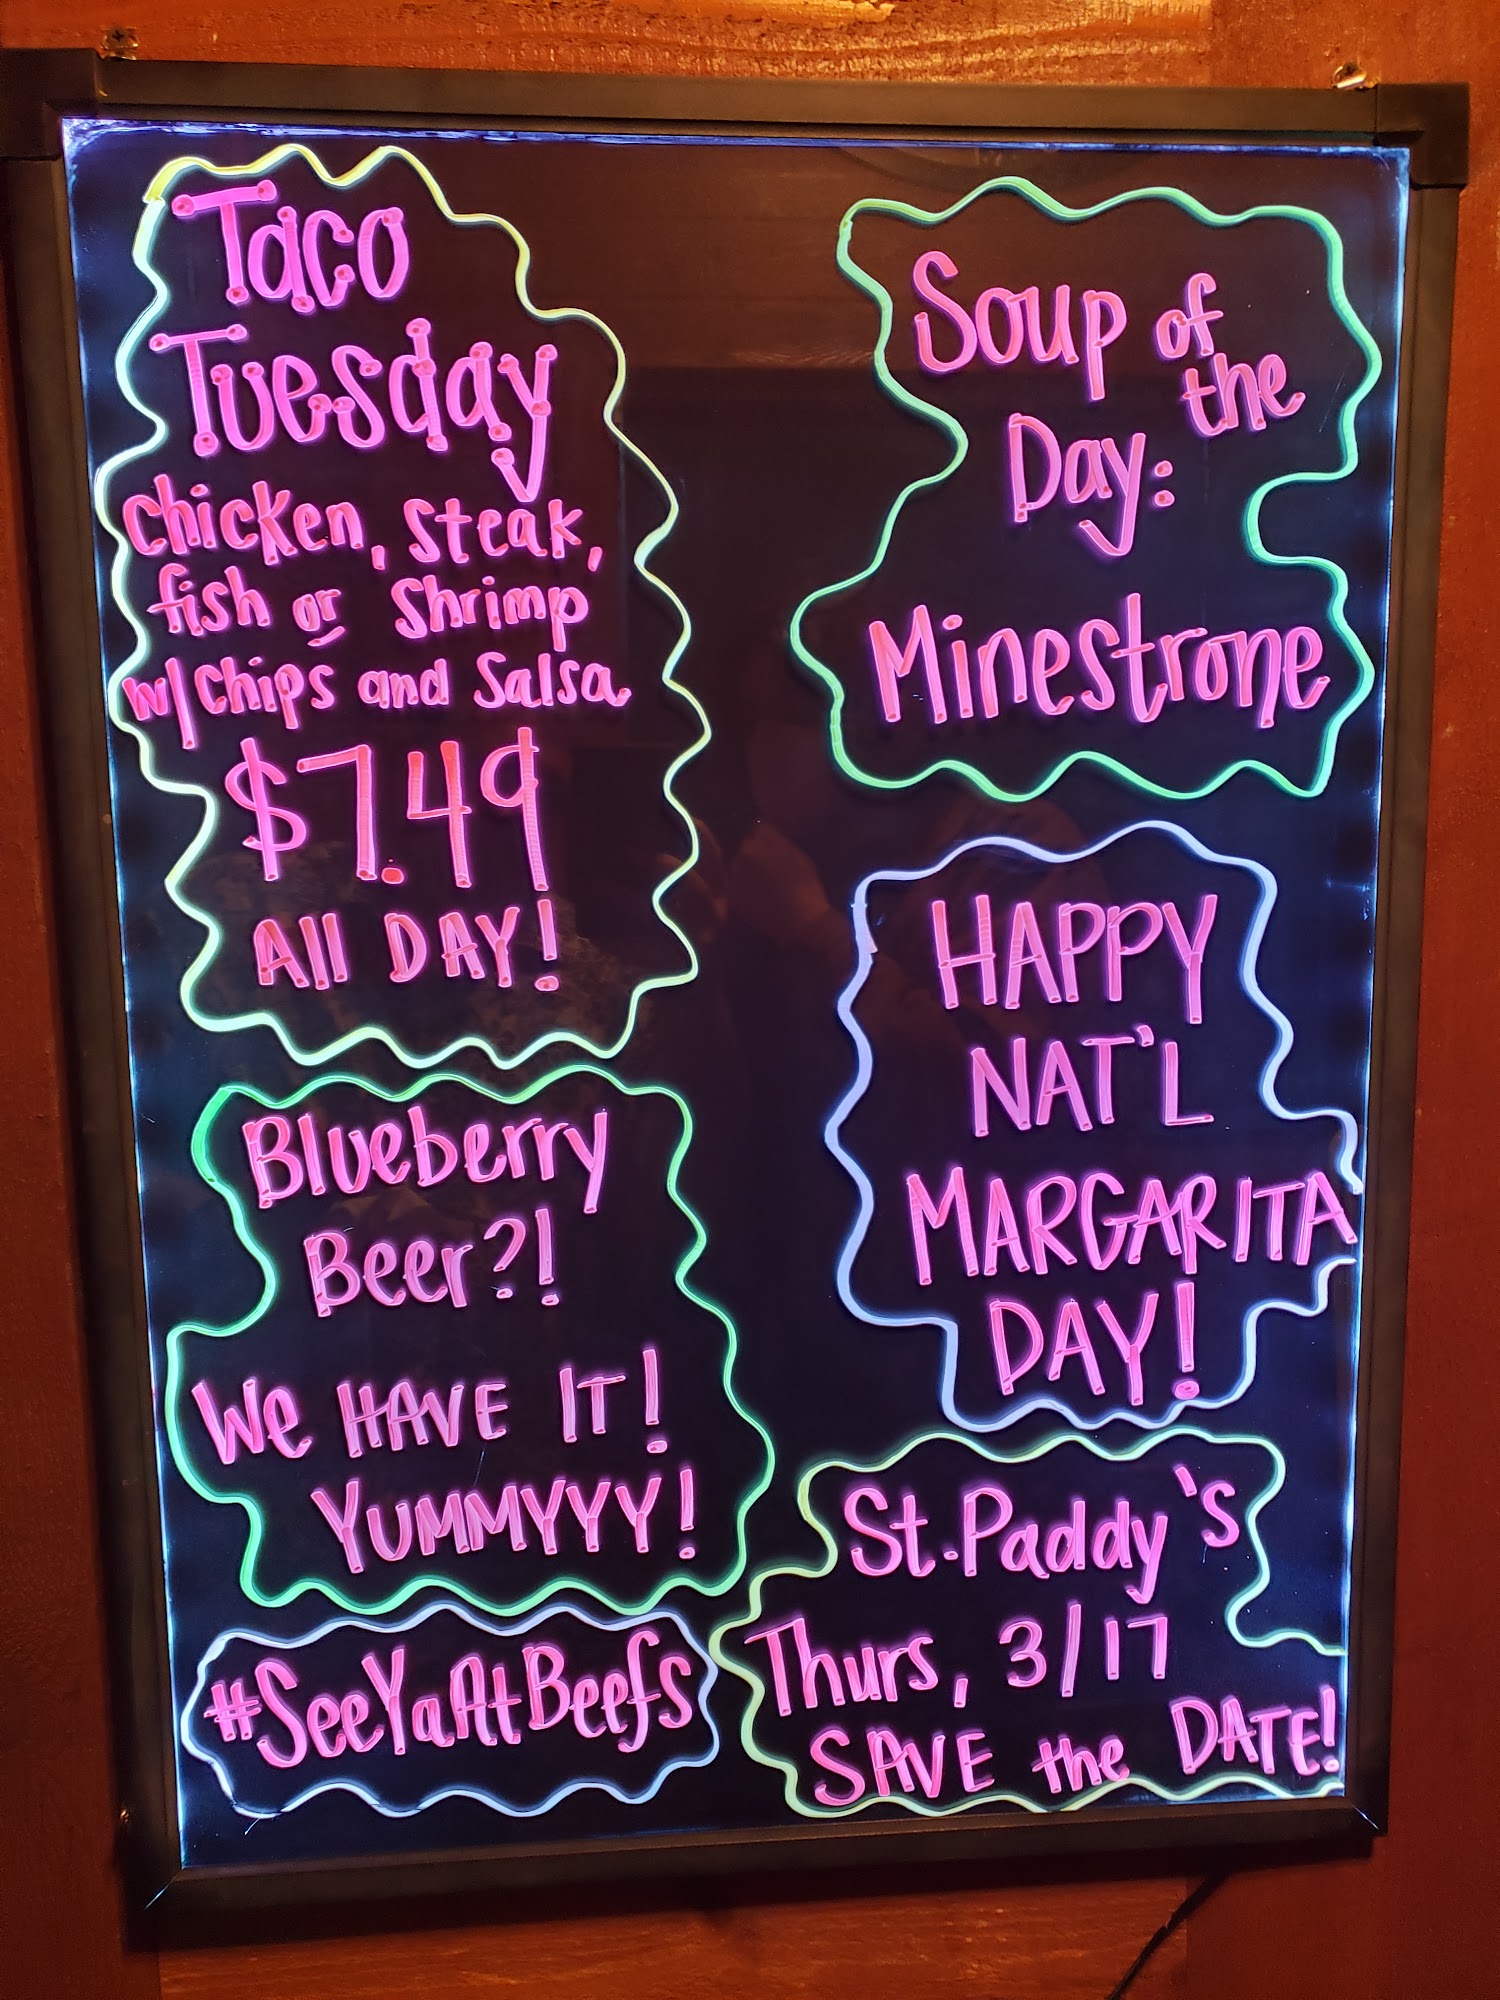 Taco
Tuesday
Chicken, Steak,
fish or Shrimp
w/ Chips and Salsa
$7.49
All DAY!
Blueberry
Beer?!
We HAVE IT!
YUMMYYY!
#SeeYaAtBeefs
Soup of
the
Day:
Minestrone
HAPPY
NAT'L
MARGARITA
DAY!
St. Paddy's
Thurs, 3/17
SAVE the DATE!